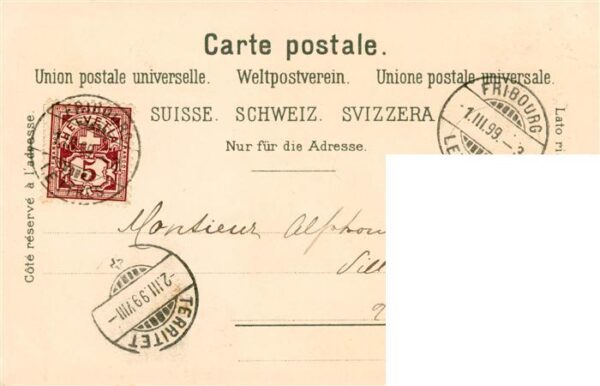 Carte postale.
Union postale universelle. Weltpostverein. Unione postale universale.
SUISSE. SCHWEIZ. SVIZZERA
Nur für die Adresse.
Côté réservé à l'adresse.
Lato ri
HELVETIA
5
FRIBOURG
1.III.99.-3
LE
Monsieur Alphon
Vill
TERRITET
-2.III.99.VIII-